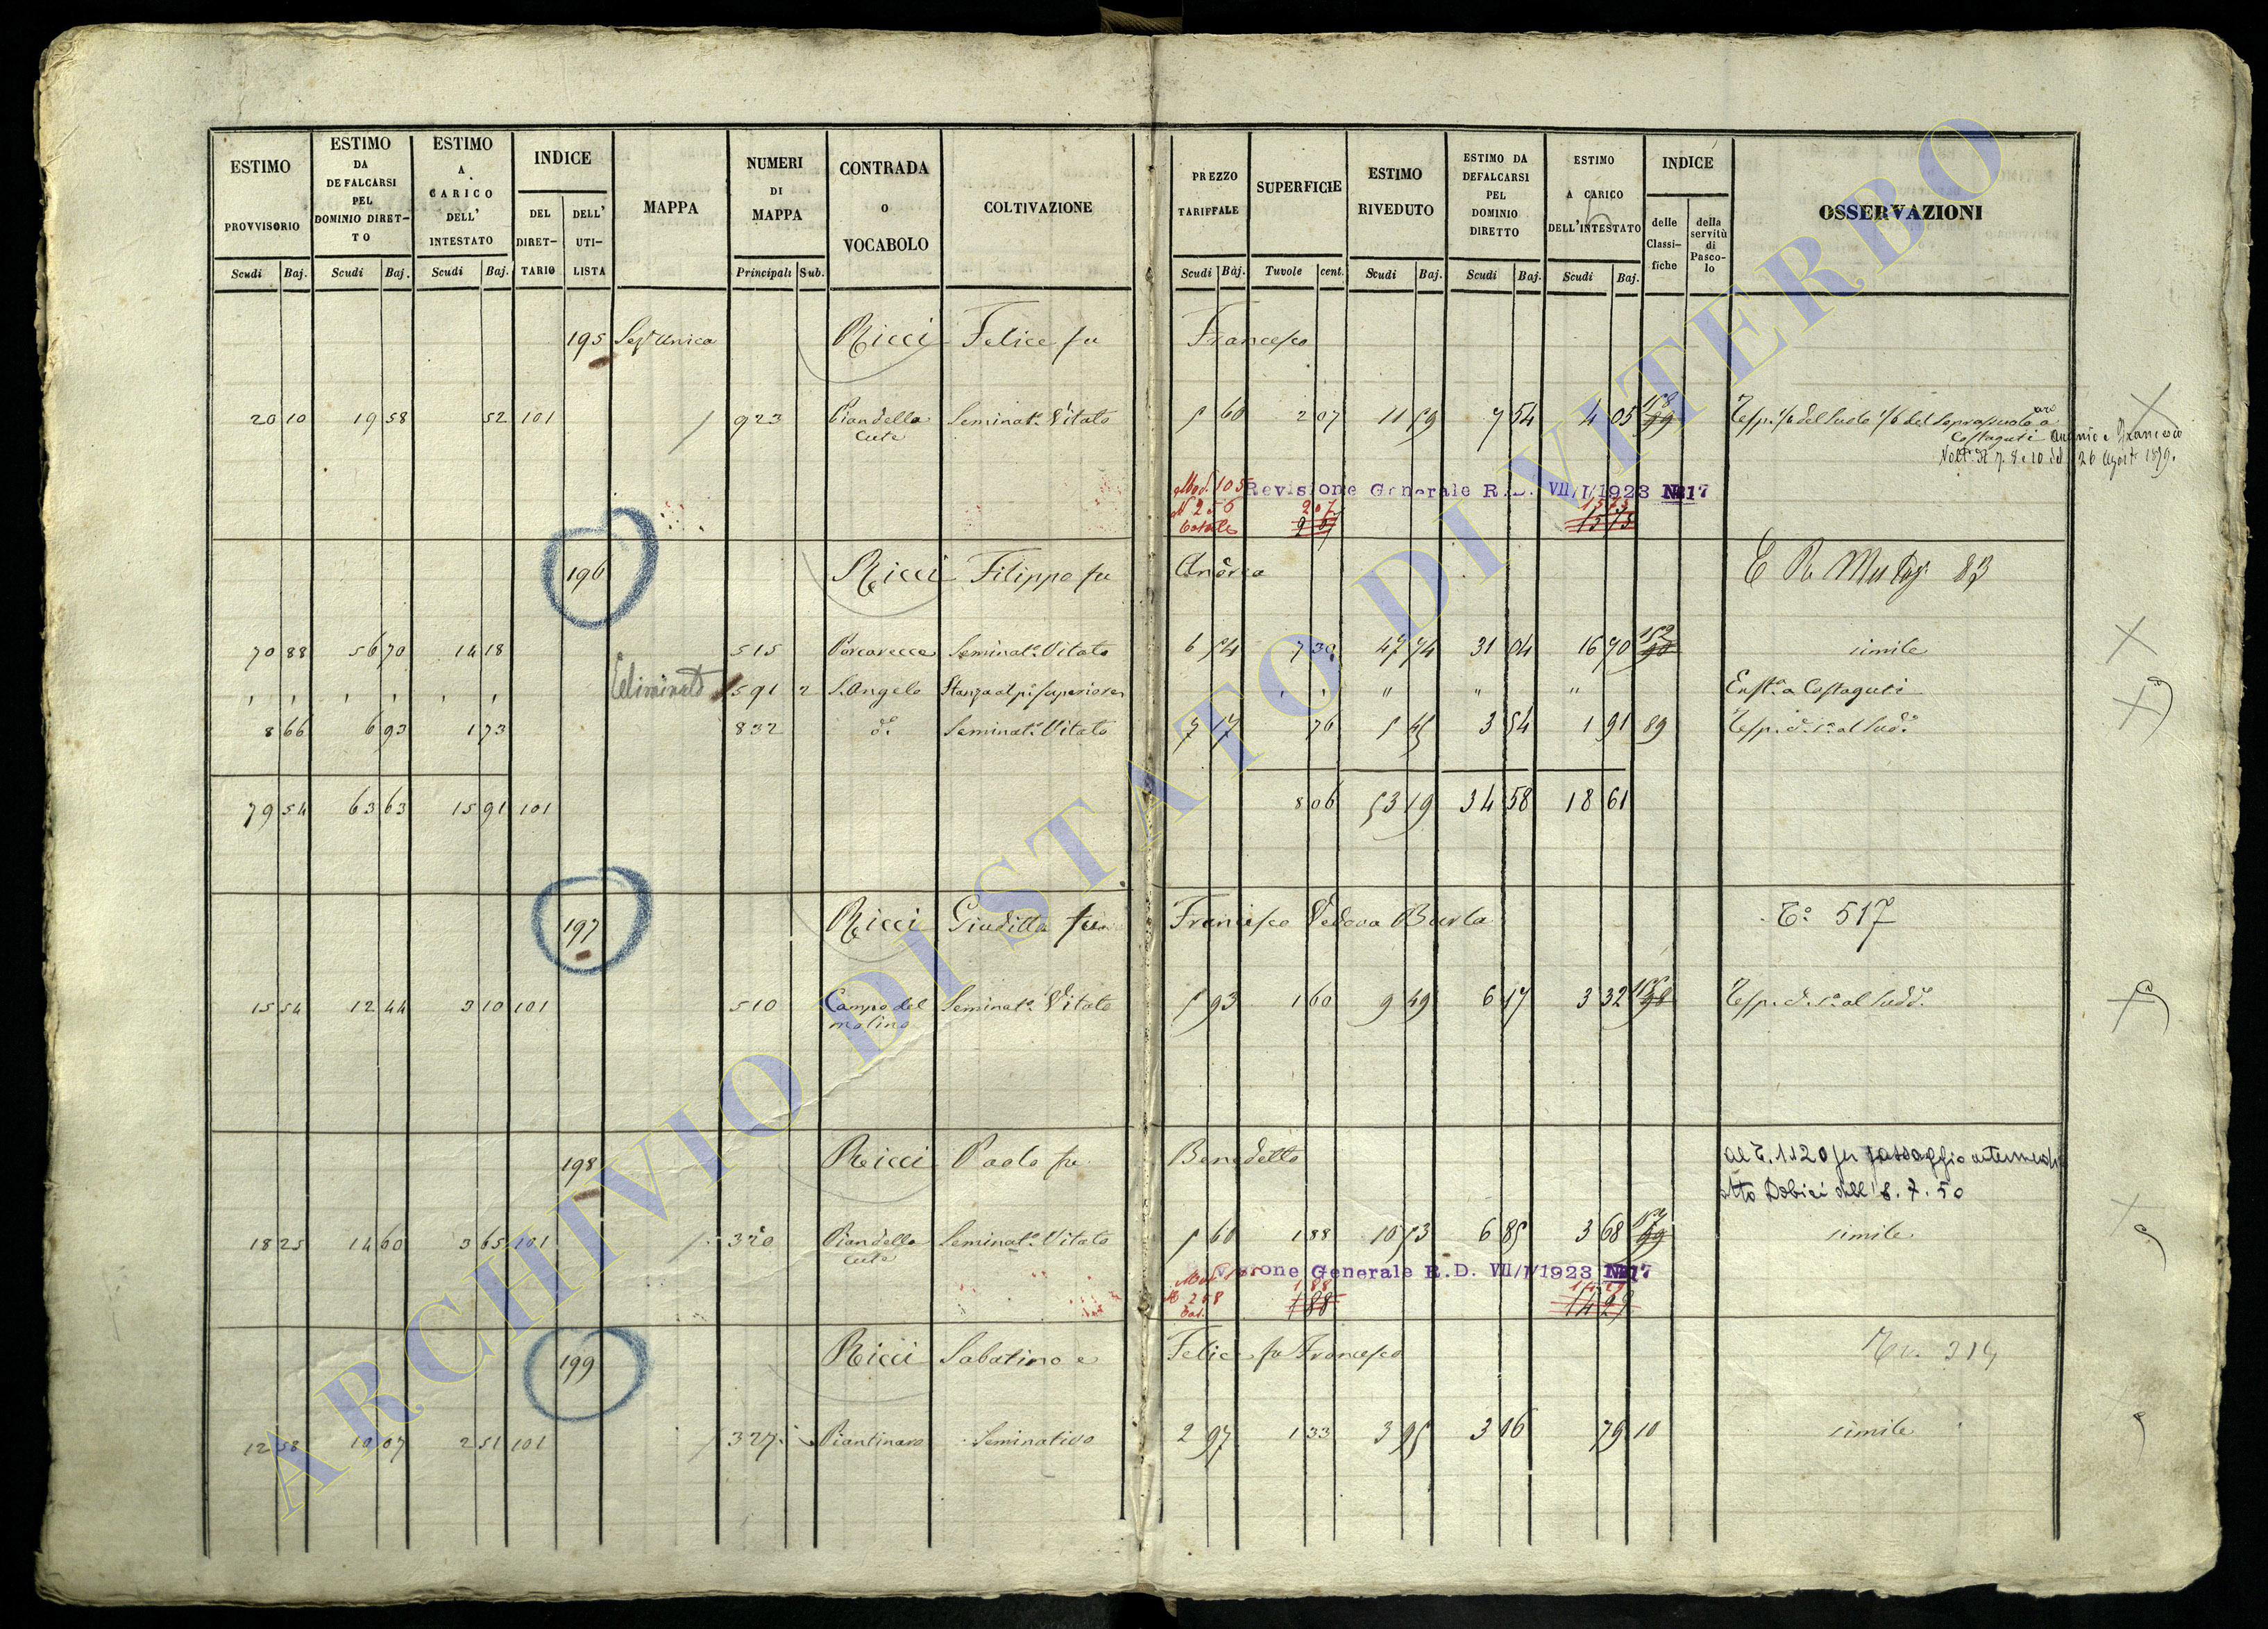 ESTIMO PROVVISORIO Scudi Baj.
ESTIMO DA DEFALCARSI PEL DOMINIO DIRET-TO Scudi Baj.
ESTIMO A CARICO DELL' INTESTATO Scudi Baj.
INDICE DEL DIRET-TARIO DELL' UTI-LISTA
MAPPA
NUMERI DI MAPPA Principali Sub.
CONTRADA o VOCABOLO
COLTIVAZIONE
PREZZO TARIFFALE Scudi Baj.
SUPERFICIE Tavole cent.
ESTIMO RIVEDUTO Scudi Baj.
ESTIMO DA DEFALCARSI PEL DOMINIO DIRETTO Scudi Baj.
ESTIMO A CARICO DELL'INTESTATO Scudi Baj.
INDICE delle Classi-fiche della servitù di Pasco-lo
OSSERVAZIONI
195 Sez.e Unica Ricci Felice fu Francesco
20 10 19 58 52 101 923 Piandella Seminat.o Vitato 5 60 2 07 11 59 7 54 4 05 158 89
Cute
Costaguti Antonio e Francesco
26 Agosto 1879.
Revisione Generale R.D. VII/I/1923 N. 17
Mod. 105
2 07
207
1573
196 Ricci Filippo fu Andrea
70 88 56 70 14 18 515 Porcareccia Seminat.o Vitato 6 54 7 30 47 74 31 04 16 70 simile
" " " " " " Eliminato 591 2 S. Angelo Stanza al p.o superiore " " " " " Enf.a a Costaguti
8 66 6 93 1 73 832 d.o Seminat.o Vitato 7 17 76 5 45 3 54 1 91 89
79 54 63 63 15 91 101 8 06 53 19 34 58 18 61
197 Ricci Giuditta fu Francesco Vedova Burla T.o 517
15 54 12 44 3 10 101 510 Campo del Seminat.o Vitato 5 93 1 60 9 49 6 17 3 32
molino
198 Ricci Paolo fu Benedetto al T. 1120 per passaggio
atto Dobici dell' 8.7.50
18 25 14 60 3 65 101 320 Piandella Seminat.o Vitato 5 60 1 88 10 53 6 85 3 68 simile
Cute
Revisione Generale R.D. VII/I/1923 N. 17
1 88
188
1429
199 Ricci Sabatino e Felice fu Francesco
12 58 10 07 2 51 101 327 Piantinaro Seminativo 2 97 1 33 3 95 3 16 79 10 simile
ARCHIVIO DI STATO DI VITERBO